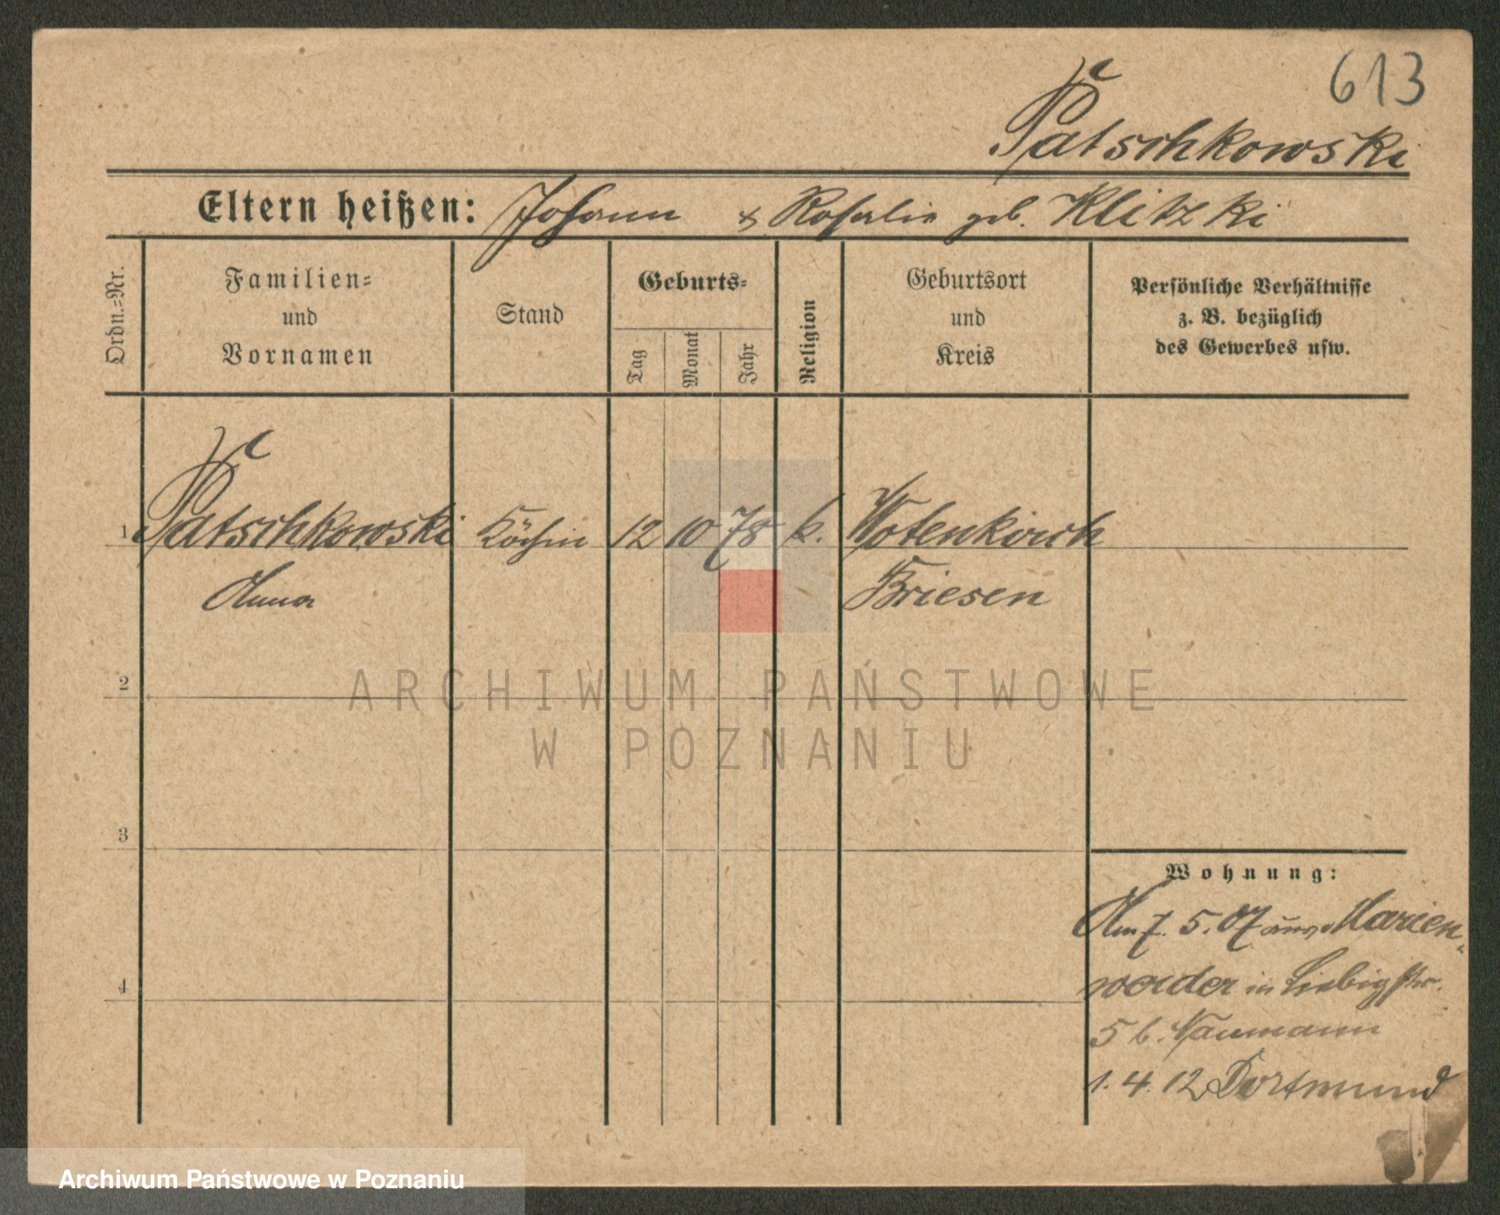 613
Patschkowski
Eltern heißen: Johann & Rosalie geb. Klitzki
Ordn.=Nr.
Familien=
und
Vornamen
Stand
Geburts=
Tag
Monat
Jahr
Religion
Geburtsort
und
Kreis
Persönliche Verhältnisse
z. B. bezüglich
des Gewerbes usw.
1 Patschkowski Köchin 12 10 78 k. Wotenkirch
Anna Briesen
2
3
4
Wohnung:
Am 7. 5. 07 aus Marien-
werder in Liebigstr.
5 b. Naumann
1. 4. 12 Dortmund
ARCHIWUM PAŃSTWOWE
W POZNANIU
Archiwum Państwowe w Poznaniu